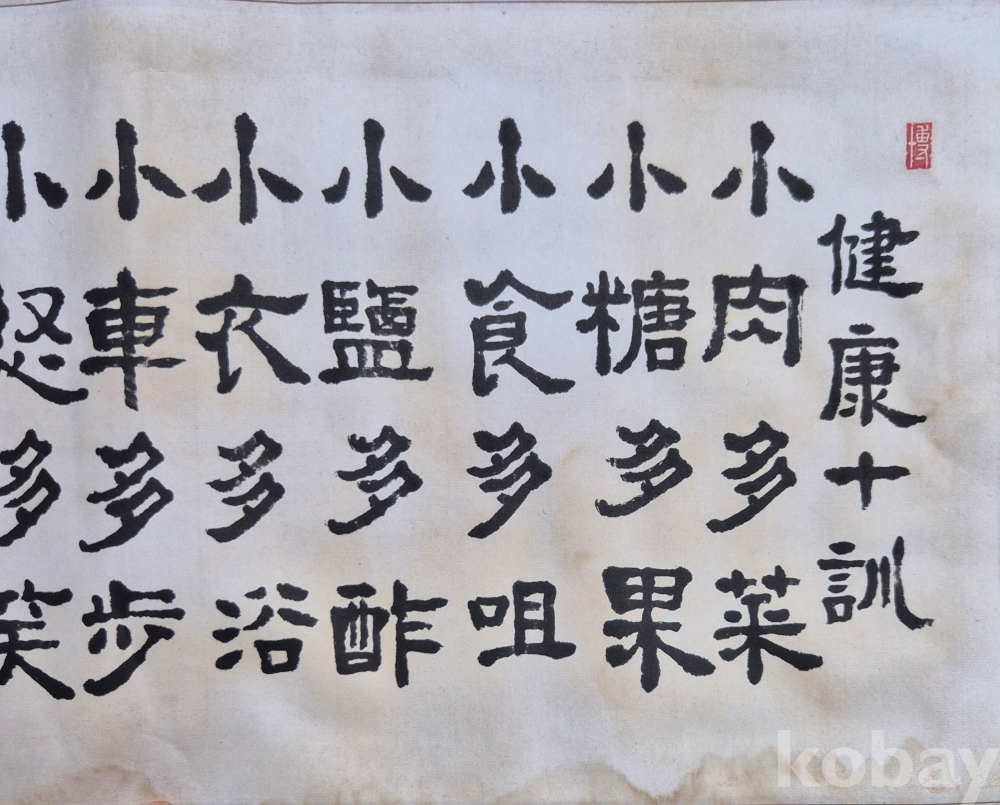 健康十訓
小肉多菜
小糖多果
小食多咀
小鹽多酢
小衣多浴
小車多步
小怒多笑
kobay